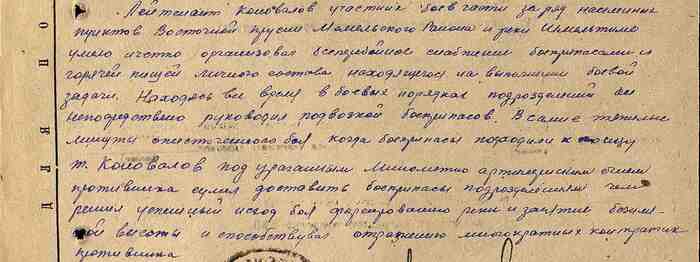 Лейтенант Коновалов участник боев части за ряд населенных
пунктов Восточной Прусии Мемельского Района и реки
умело и четко организовал бесперебойное снабжение боеприпасами и
горячей пищей личного состава находящегося на выполнении боевой
задачи. Находясь все время в боевых порядках подразделений он
непосредственно руководил подвозкой боеприпасов. В самые тяжелые
минуты ожесточенного боя когда боеприпасы подходили к концу
т. Коновалов под ураганным минометно артилерийским огнем
противника сумел доставить боеприпасы подразделениям чем
решил успешный исход боя форсированию реки и занятие безимя-
ной высоты и способствовал отражению многократных контратак
противника